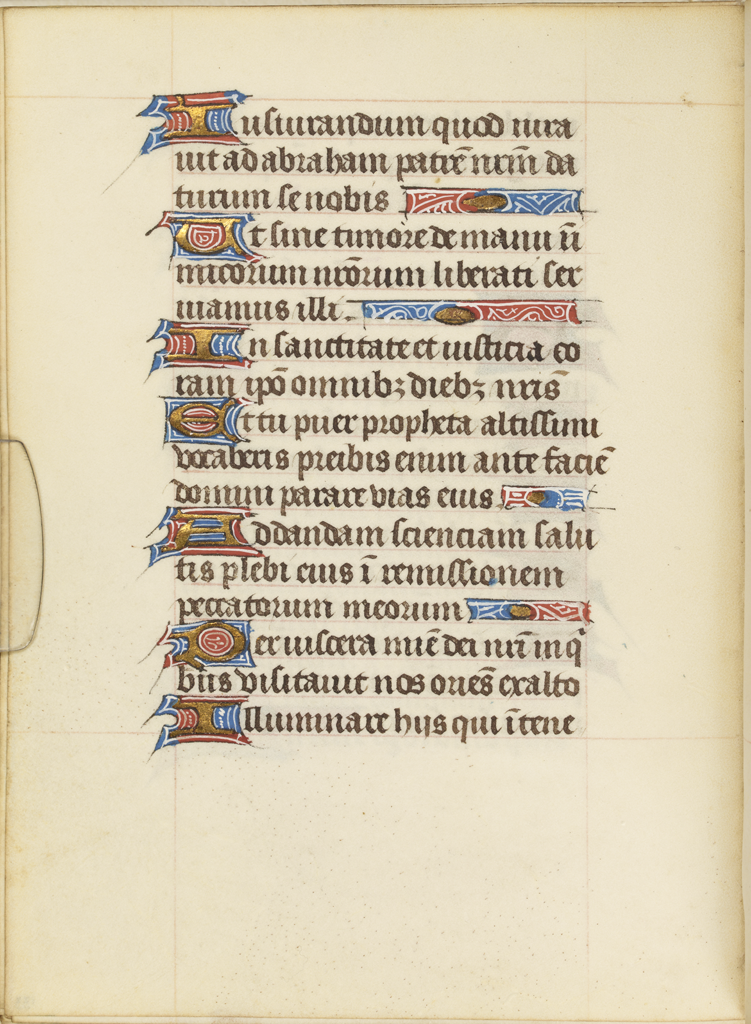 Iusiurandum quod iura
uit ad abraham patrē nrm̄ da
turum se nobis
Ut sine timore de manu ini
micorum nrōrum liberati ser
uiamus illi.
In sanctitate et iusticia co
ram ipō omnibꝫ diebꝫ nris̄
Et tu puer propheta altissimi
vocaberis preibis enim ante faciē
domini parare vias eius
Ad dandam scienciam salu
tis plebi eius ī remissionem
peccatorum meorum
Per uiscera mīe dei nrī in q̄
bus visitauit nos oriēs exalto
Illuminare hijs qui ī tene